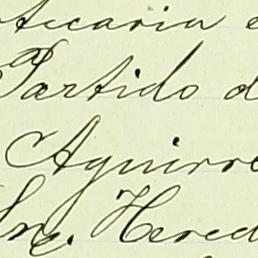 otecaria e
Partido d
Aguirre
Sne. Hered